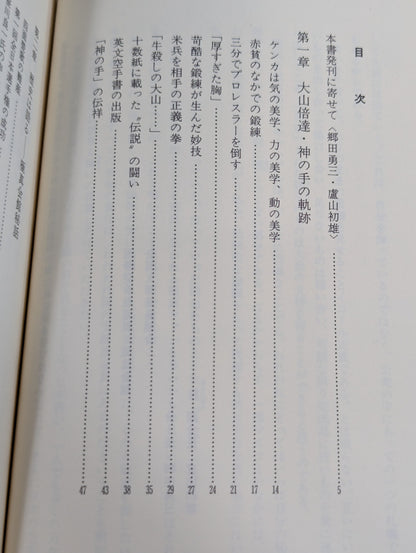 目次
本書発刊に寄せて〈郷田勇三・盧山初雄〉……5
第一章 大山倍達・神の手の軌跡
ケンカは気の美学、力の美学、動の美学……14
赤貧のなかでの鍛練……17
三分でプロレスラーを倒す……21
「厚すぎた胸」……24
苛酷な鍛練が生んだ妙技……27
米兵を相手の正義の拳……29
「牛殺しの大山……」……35
十数紙に載った〝伝説〟の闘い……38
英文空手書の出版……43
「神の手」の伝祥……47